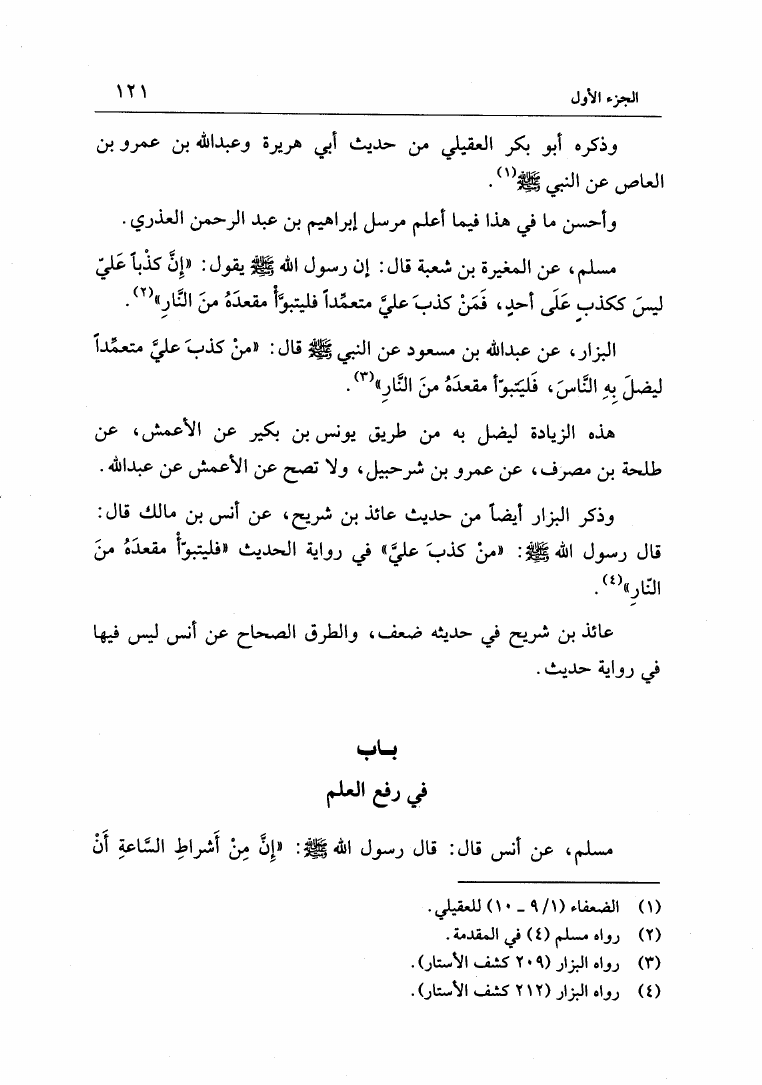 الجزء الأول ١٢١
وذكره أبو بكر العقيلي من حديث أبي هريرة وعبدالله بن عمرو بن
العاص عن النبي ﷺ(١).
وأحسن ما في هذا فيما أعلم مرسل إبراهيم بن عبد الرحمن العذري.
مسلم، عن المغيرة بن شعبة قال: إن رسول الله ﷺ يقول: «إِنَّ كذْباً عَليّ
ليسَ ككذبٍ عَلَى أحدٍ، فَمَنْ كذبَ عليَّ متعمِّداً فليتبوَّأْ مقعدَهُ منَ النَّارِ»(٢).
البزار، عن عبدالله بن مسعود عن النبي ﷺ قال: «منْ كذبَ عليَّ متعمِّداً
ليضلَ بِهِ النَّاسَ، فَليَتبوّأ مقعدَهُ منَ النَّارِ»(٣).
هذه الزيادة ليضل به من طريق يونس بن بكير عن الأعمش، عن
طلحة بن مصرف، عن عمرو بن شرحبيل، ولا تصح عن الأعمش عن عبدالله.
وذكر البزار أيضاً من حديث عائذ بن شريح، عن أنس بن مالك قال:
قال رسول الله ﷺ: «منْ كذبَ عليَّ» في رواية الحديث «فليتبوّأْ مقعدَهُ منَ
النّارِ»(٤).
عائذ بن شريح في حديثه ضعف، والطرق الصحاح عن أنس ليس فيها
في رواية حديث.
باب
في رفع العلم
مسلم، عن أنس قال: قال رسول الله ﷺ: «إِنَّ مِنْ أَشراطِ السَّاعةِ أَنْ
(١) الضعفاء (٩/١ ـ ١٠) للعقيلي.
(٢) رواه مسلم (٤) في المقدمة.
(٣) رواه البزار (٢٠٩ كشف الأستار).
(٤) رواه البزار (٢١٢ كشف الأستار).